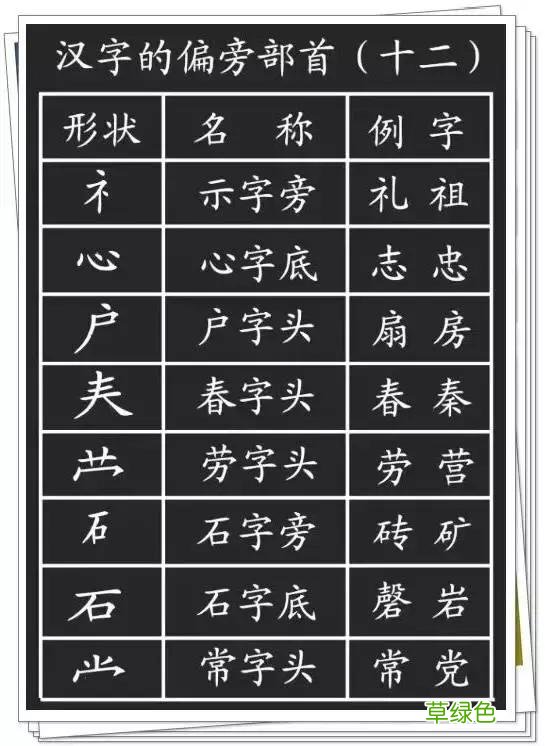 汉字的偏旁部首（十二）
形状 名 称 例 字
礻 示字旁 礼 祖
心 心字底 志 忠
户 户字头 扇 房
𡗗 春字头 春 秦
𫇦 劳字头 劳 营
石 石字旁 砖 矿
石 石字底 磬 岩
龸 常字头 常 党
草绿色